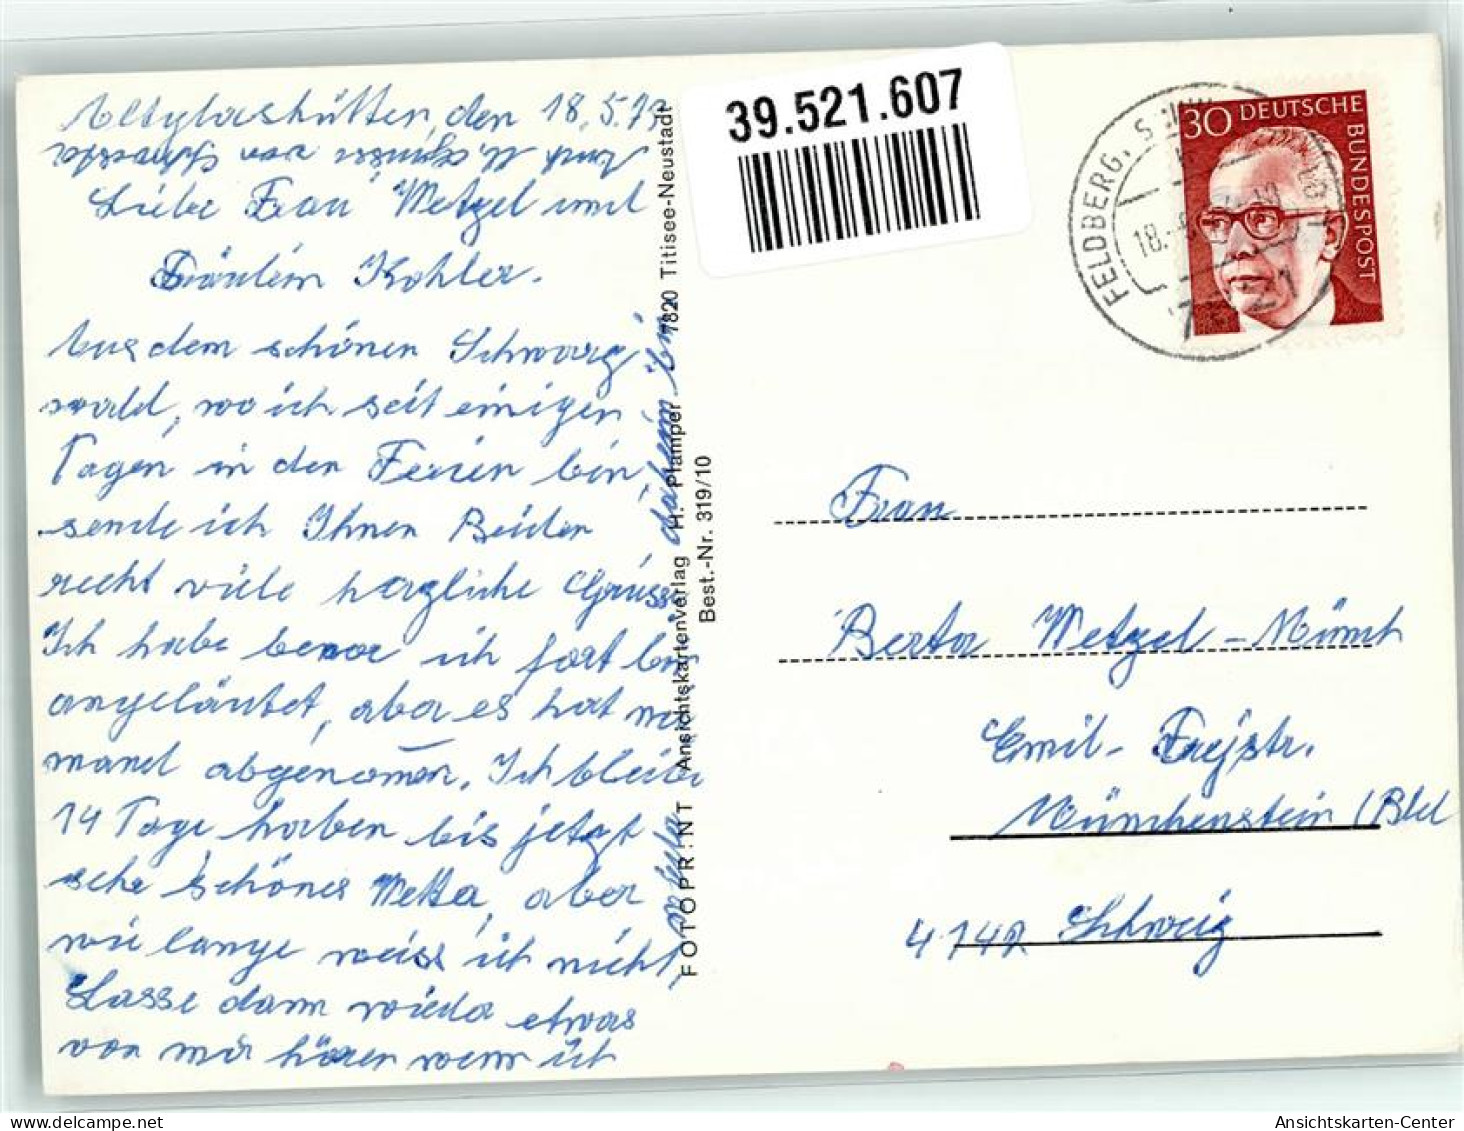 Altglashütten, den 18.5.73
Liebe Frau Wetzel und
Fräulein Kohler.
Aus dem schönen Schwarz
wald, wo ich seit einigen
Tagen in den Ferien bin,
sende ich Ihnen Beiden
recht viele herzliche Grüsse
Ich habe bevor ich fort bin
angeläutet, aber es hat nie
mand abgenomen. Ich bleibe
14 Tage haben bis jetzt
sehr schönes Wetter, aber
wie lange weiss ich nicht,
Lasse dann wieder etwas
von mir hören wenn ich
daheim bin.
Auch Grüsse von Schwester
FOTOPRINT Ansichtskartenverlag H. Plamper 7820 Titisee-Neustadt
Best.-Nr. 319/10
39.521.607
FELDBERG, S
18.
30 DEUTSCHE
BUNDESPOST
Frau
Berta Wetzel-Münch
Emil-Freystr.
Münchenstein/Bld
4142 Schweiz
Ansichtskarten-Center